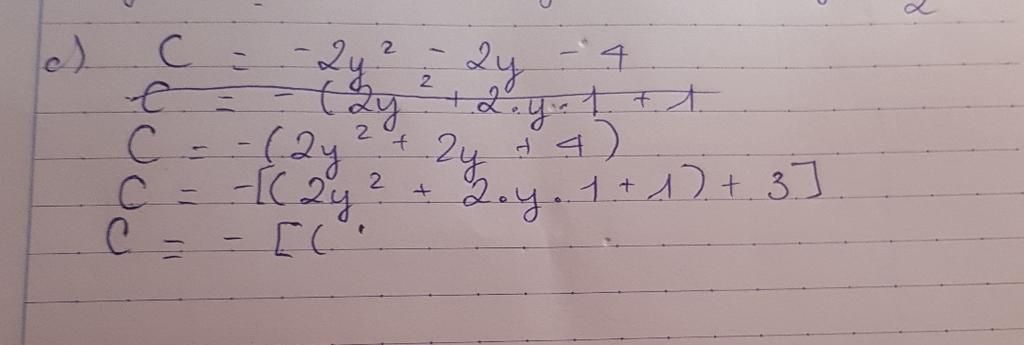 c) C = -2y² - 2y - 4
C = -(2y² + 2.y.1 + 1
C = -(2y² + 2y + 4)
C = -[(2y² + 2.y.1 + 1) + 3]
C = - [(